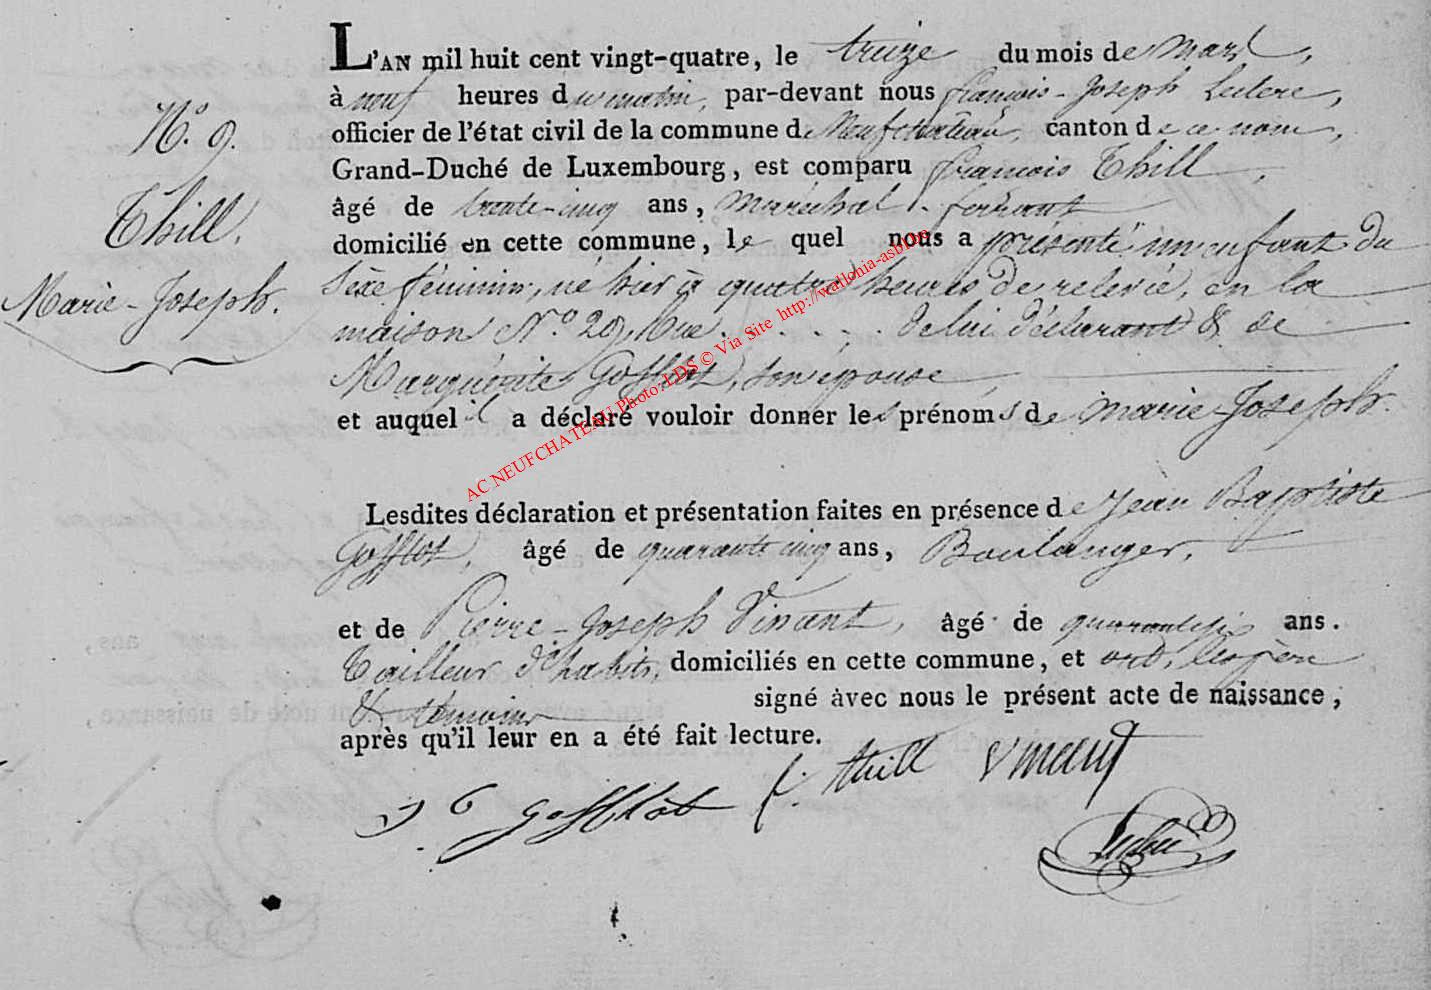 L'AN mil huit cent vingt-quatre, le treize du mois de mars,
à neuf heures du matin, par-devant nous françois-Joseph Leclerc,
N.° 9.
officier de l'état civil de la commune de Neufchateau, canton de ce nom,
Grand-Duché de Luxembourg, est comparu françois Thill,
Thill.
âgé de trente-cinq ans, Maréchal-ferrant
domicilié en cette commune, le quel nous a présenté un enfant du
Marie-Joseph.
Sèxe féminin, né hier à quatre heures de relevée, en la
maison N.° 29, Rue . . . . . de lui déclarant & de
Marguérite Gofflot, son épouse,
et auquel il a déclaré vouloir donner les prénoms de marie-Joseph.
AC NEUFCHATEAU Photo: LDS © Via Site http://wallonia-asbl.be
Lesdites déclaration et présentation faites en présence de Jean Baptiste
Gofflot, âgé de quarante cinq ans, Boulanger,
et de Pierre-Joseph Vinant, âgé de quarante six ans.
Tailleur d'habits, domiciliés en cette commune, et ont, les père
& témoins signé avec nous le présent acte de naissance,
après qu'il leur en a été fait lecture.
f. thill vinant
gofflot